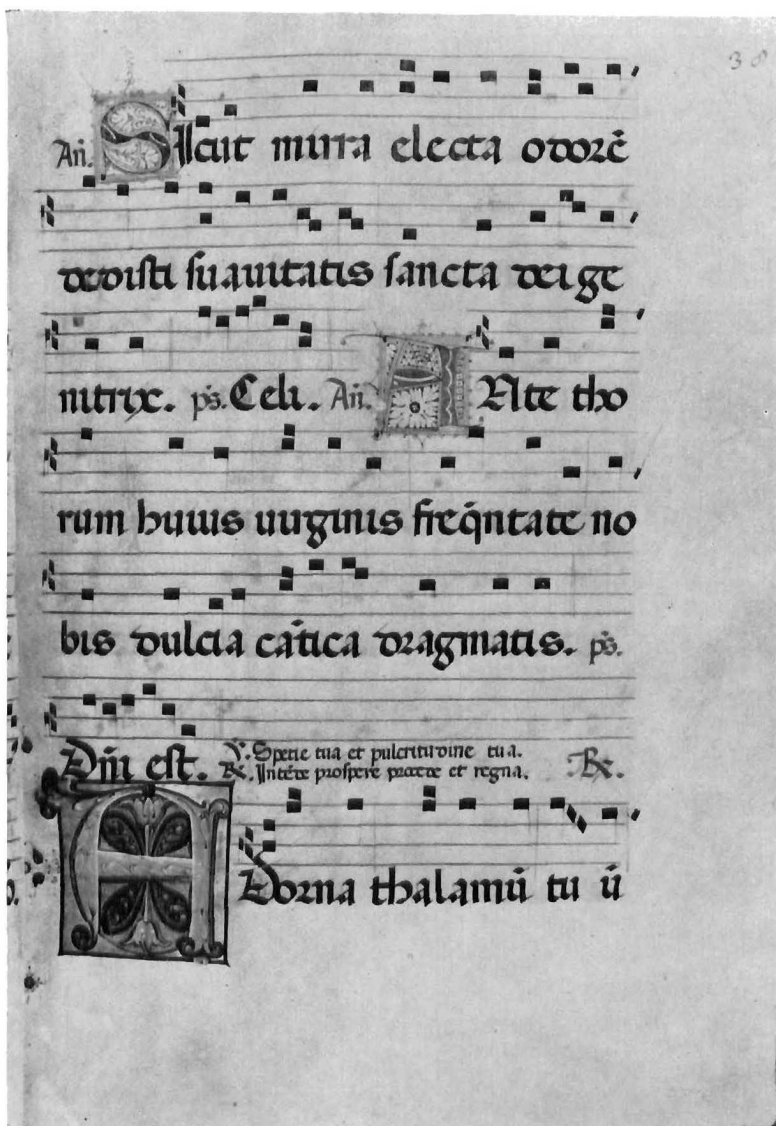 38
An̄. Sicut mirra electa odorē
dedisti suauitatis sancta dei ge
nitrix. ps. Celi. An̄. ANte tho
rum huius uirginis freq̄ntate no
bis dulcia cātica dragmatis. ps.
Dn̄i est. ℣. Spetie tua et pulcritudine tua.
℟. Intēde prospere procede et regna. ℟.
ADorna thalamū tu ū